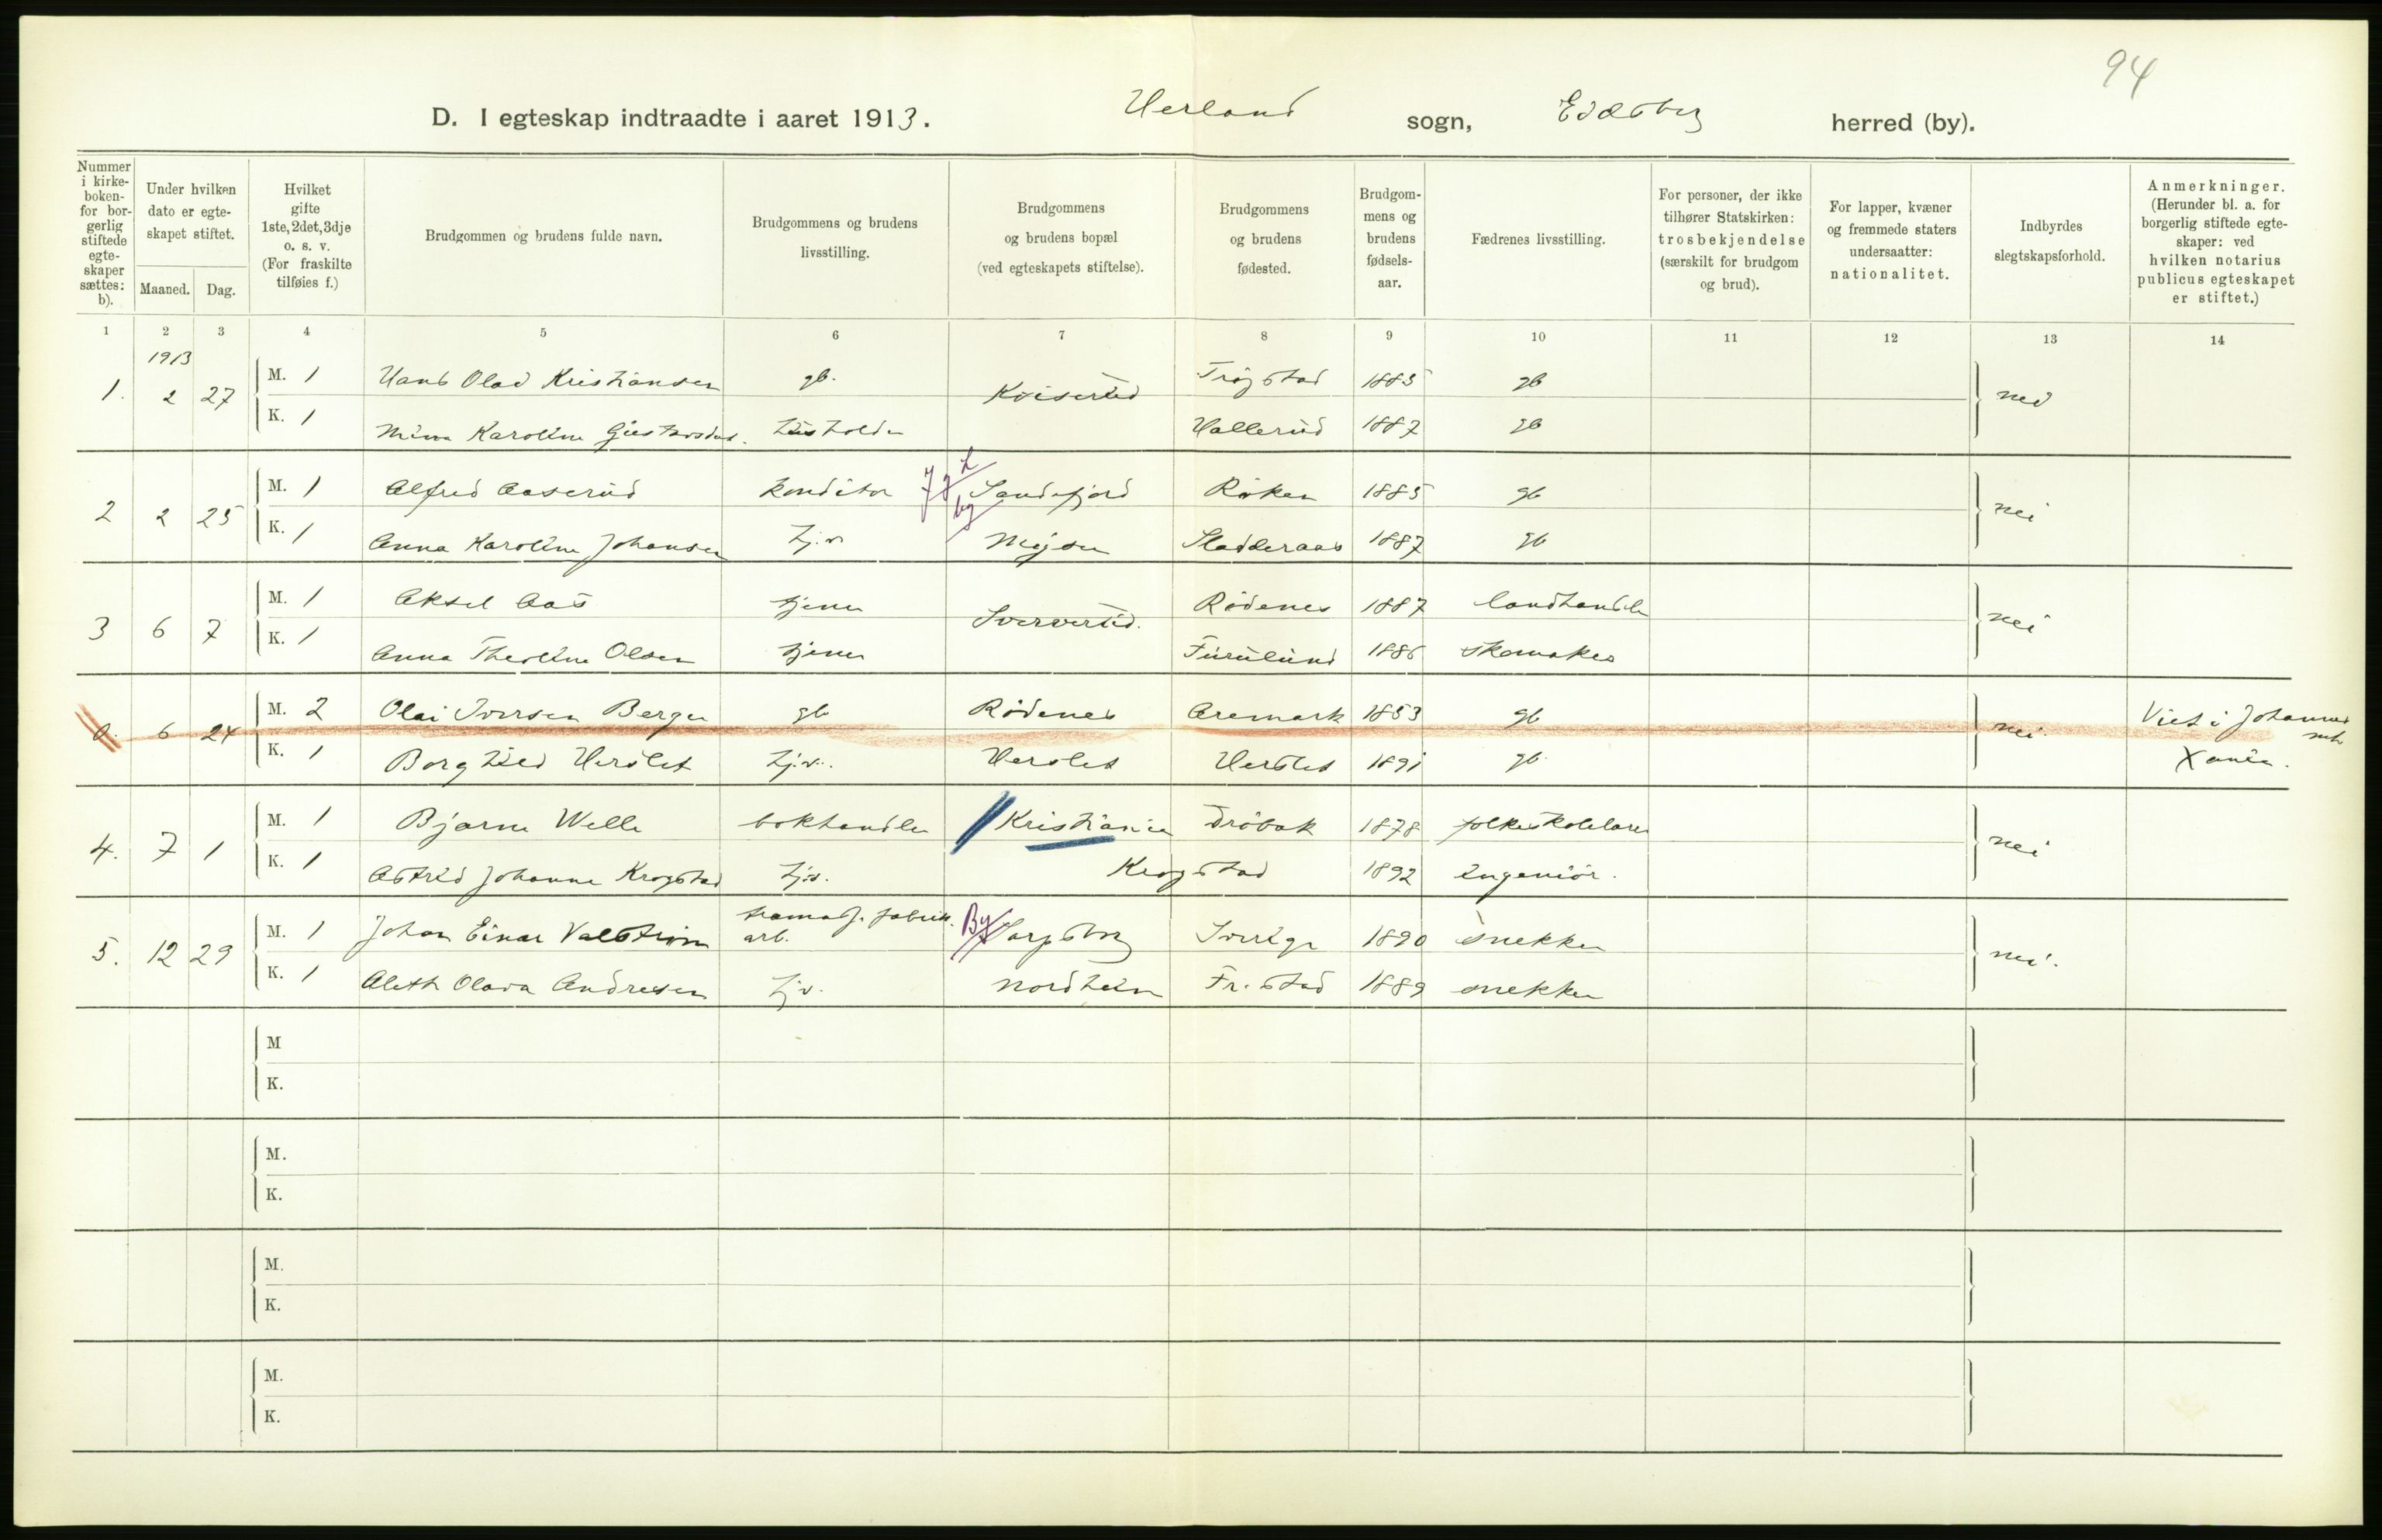 94
D. I egteskap indtraadte i aaret 1913. Herland sogn, Eidsberg herred (by).
Nummer i kirke-boken- for bor-gerlig stiftede egte-skaper sættes: b).
Under hvilken dato er egte-skapet stiftet.
Maaned. Dag.
Hvilket gifte 1ste, 2det, 3dje o. s. v. (For fraskilte tilføies f.)
Brudgommen og brudens fulde navn.
Brudgommens og brudens livsstilling.
Brudgommens og brudens bopæl (ved egteskapets stiftelse).
Brudgommens og brudens fødested.
Brudgom-mens og brudens fødsels-aar.
Fædrenes livsstilling.
For personer, der ikke tilhører Statskirken: trosbekjendelse (særskilt for brudgom og brud).
For lapper, kvæner og fremmede staters undersaatter: nationalitet.
Indbyrdes slegtskapsforhold.
Anmerkninger. (Herunder bl. a. for borgerlig stiftede egte-skaper: ved hvilken notarius publicus egteskapet er stiftet.)
1 2 3 4 5 6 7 8 9 10 11 12 13 14
1913
1. 2 27 M. 1 Hans Olad Kristiansen gb. Kviserud Trøgstad 1885 gb nei
K. 1 Mina Karoline Hallerud 1887 gb
2 2 25 M. 1 Alfred Aaserud konditor Sandefjord Røken 1885 gb nei
K. 1 Anna Karoline Johansen tj.v. Mysen Sladderaas 1887 gb
3 6 7 M. 1 Aksel Aas tjener Rødenes 1887 landhandler nei
K. 1 Anna Theoline Olsen tjener Furulund 1886 skomaker
0. 6 24 M. 2 Olai Iversen Berger gb Rødenes Aremark 1853 gb nei. Viet i Johannes
K. 1 Borghild Herslet tj.v. Herslet Herslet 1891 gb. Xania.
4. 7 1 M. 1 Bjarne Welle bokhandler Kristiania Drøbak 1878 folkeskolelærer nei
K. 1 Astrid Johanne Krogstad tj.v. Krogstad 1892 Ingeniør.
5. 12 29 M. 1 Johan Einar Valstrøm arb. By Sarpsborg Sverige 1890 snekker nei.
K. 1 Aleth Olava Andresen tj.v. Nordheim Fr.stad 1889 snekker
M
K.
M.
K.
M.
K.
M.
K.